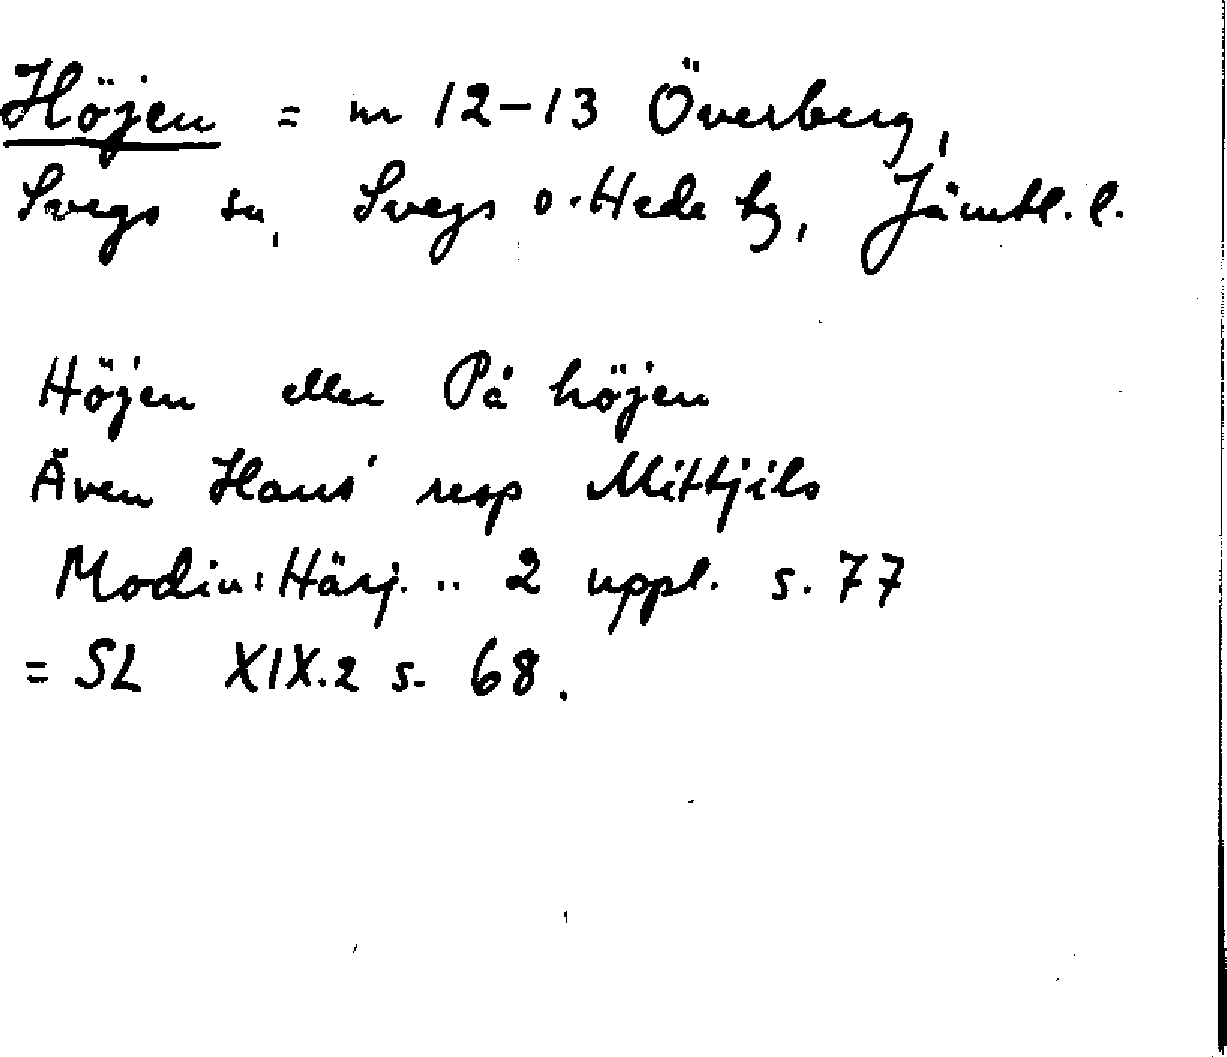 Höjen = nr 12-13 Överberg,
Svegs sn, Svegs o. Hede tg, Jämtl. l.
Höjen eller På höjen
Även Hans' resp Mittjils
Modin: Härj. .. 2 uppl. s. 77
= SL XIX.2 s. 68.